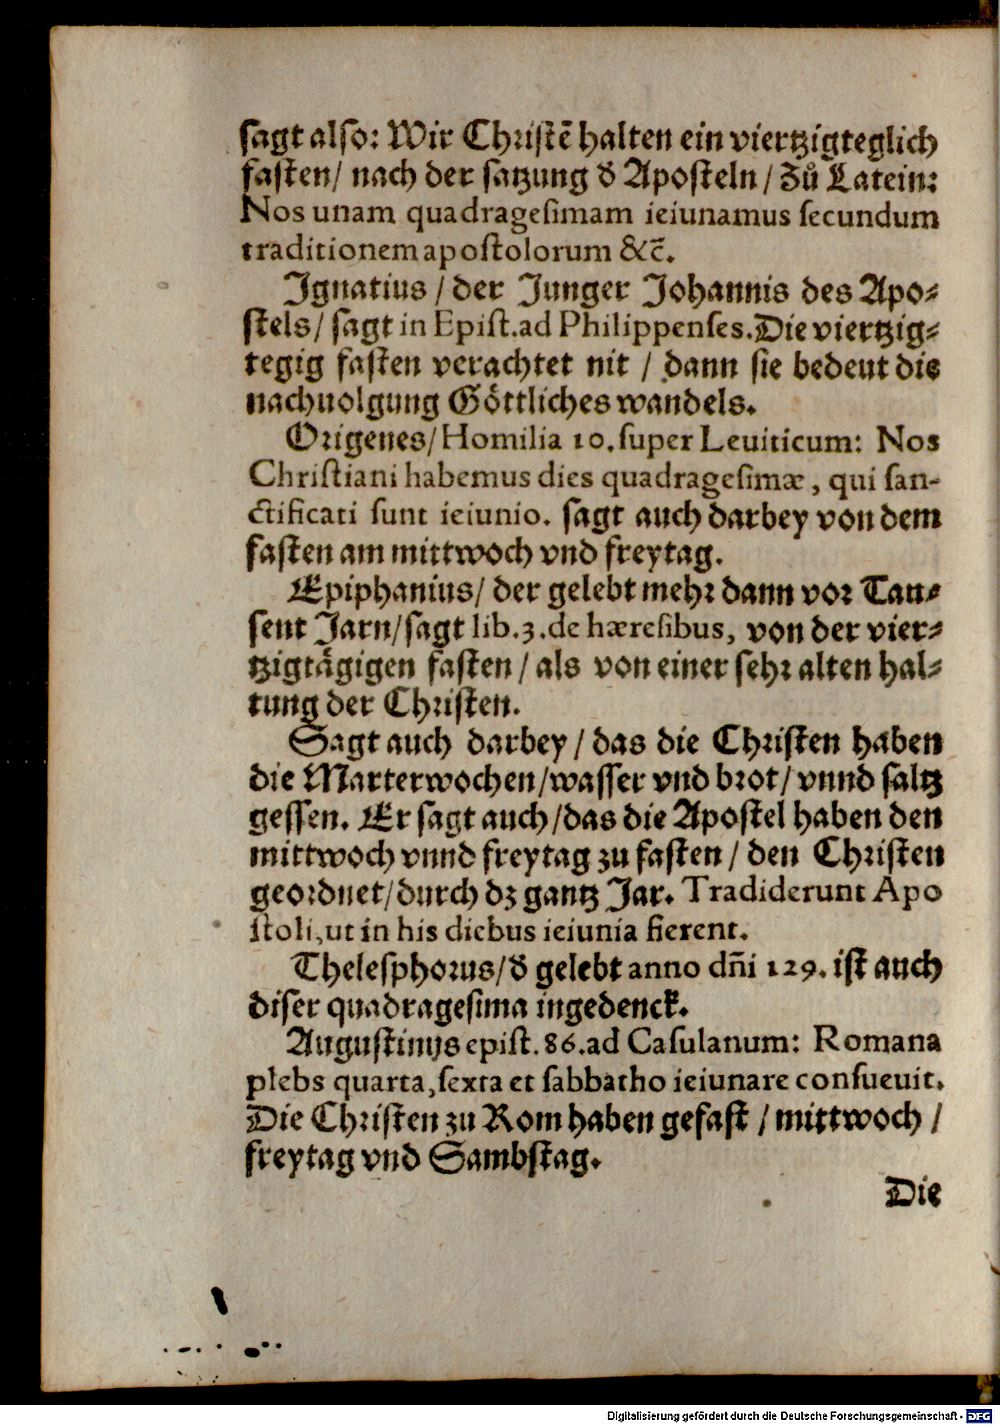 sagt also: Wir Christē halten ein viertzigteglich
fasten/ nach der satzung d̕ Aposteln/ Zů Latein:
Nos unam quadragesimam ieiunamus secundum
traditionem apostolorum &c̄.
Ignatius / der Junger Johannis des Apo⸗
stels/ sagt in Epist. ad Philippenses. Die viertzig⸗
tegig fasten verachtet nit / dann sie bedeut die
nachuolgung Göttliches wandels.
Origenes/ Homilia 10. super Leuiticum: Nos
Christiani habemus dies quadragesimæ, qui san-
ctificati sunt ieiunio. sagt auch darbey von dem
fasten am mittwoch vnd freytag.
Epiphanius/ der gelebt mehr dann vor Tau⸗
sent Jarn/ sagt lib. 3. de hæresibus, von der vier⸗
tzigtägigen fasten / als von einer sehr alten hal⸗
tung der Christen.
Sagt auch darbey / das die Christen haben
die Marterwochen/ wasser vnd brot/ vnnd saltz
gessen. Er sagt auch/ das die Apostel haben den
mittwoch vnnd freytag zu fasten / den Christen
geordnet/ durch dz gantz Jar. Tradiderunt Apo
stoli, ut in his diebus ieiunia fierent.
Thelesphorus/ d̕ gelebt anno dn̄i 129. ist auch
diser quadragesima ingedenck.
Augustinus epist. 86. ad Casulanum: Romana
plebs quarta, sexta et sabbatho ieiunare consueuit.
Die Christen zu Rom haben gefast / mittwoch /
freytag vnd Sambstag.
Die
Digitalisierung gefördert durch die Deutsche Forschungsgemeinschaft - DFG